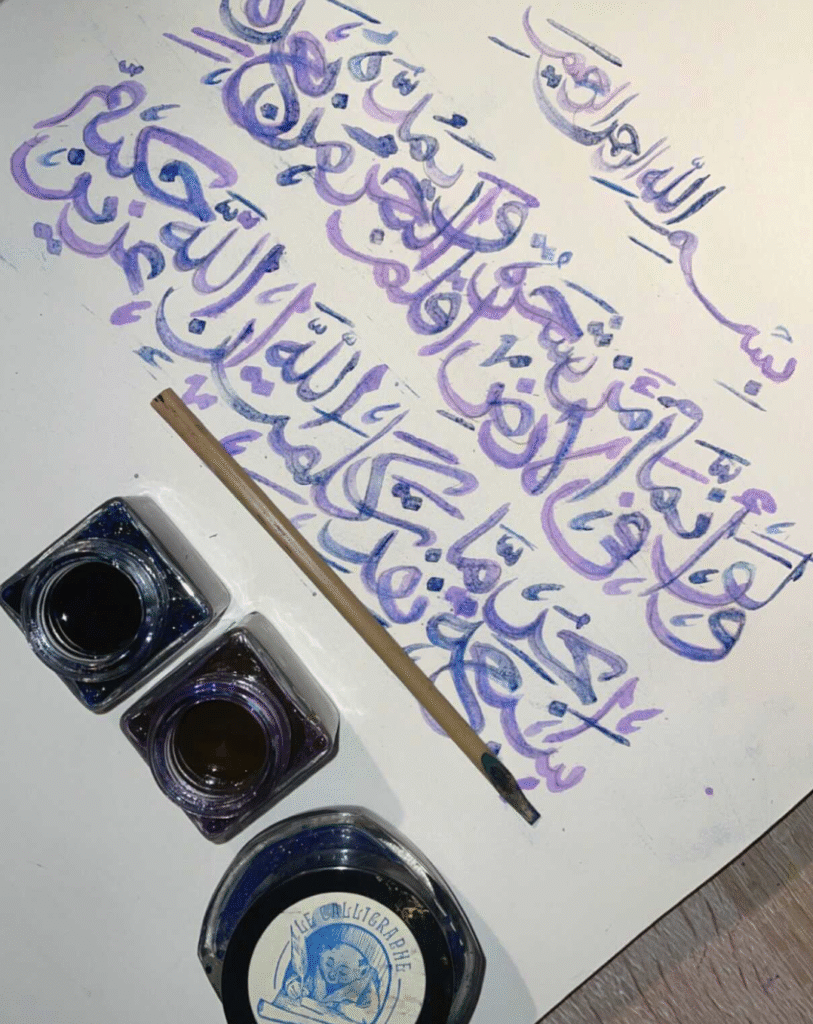 بسم الله الرحمن الرحيم
ولو أنما في الأرض من شجرة أقلم والبحر يمده من بعده
سبعة أبحر ما نفدت كلمت الله إن الله عزيز حكيم
LE CALLIGRAPHE